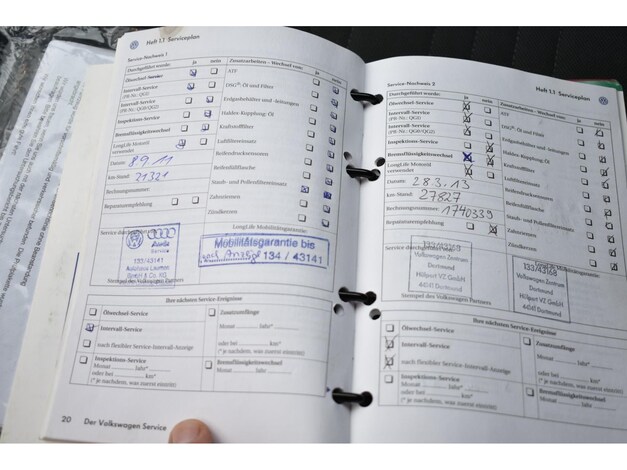 Heft 1.1 Serviceplan
Service-Nachweis 1
Durchgeführt wurde: ja nein
Ölwechsel-Service
Intervall-Service
(PR-Nr.: QG1)
Intervall-Service
(PR-Nr.: QG0/QG2)
Inspektions-Service
Bremsflüssigkeitswechsel
LongLife Motoröl
verwendet
Datum: 8 9 11
km-Stand: 21321
Rechnungsnummer:
Reparaturempfehlung
Zusatzarbeiten - Wechsel von: ja nein
ATF
DSG®: Öl und Filter
Erdgasbehälter und -leitungen
Haldex-Kupplung: Öl
Kraftstofffilter
Luftfiltereinsatz
Reifendruckensoren
Reifenfüllflasche
Staub- und Pollenfiltereinsatz
Zahnriemen
Zündkerzen
Service durchgeführt von:
LongLife Mobilitätsgarantie:
Audi
Service
133/43141
Mobilitätsgarantie bis
134 / 43141
Stempel des Volkswagen Partners
Ihre nächsten Service-Ereignisse
Ölwechsel-Service
Intervall-Service
nach flexibler Service-Intervall-Anzeige
Inspektions-Service
Monat Jahr*
oder bei km*
(* je nachdem, was zuerst eintritt)
Zusatzumfänge
Monat Jahr*
oder bei km*
(* je nachdem, was zuerst eintritt)
Bremsflüssigkeitswechsel
Monat Jahr
20 Der Volkswagen Service
Heft 1.1 Serviceplan
Service-Nachweis 2
Durchgeführt wurde: ja nein
Ölwechsel-Service
Intervall-Service
(PR-Nr.: QG1)
Intervall-Service
(PR-Nr.: QG0/QG2)
Inspektions-Service
Bremsflüssigkeitswechsel
LongLife Motoröl
verwendet
Datum: 28.3.13
km-Stand: 27827
Rechnungsnummer: 1740339
Reparaturempfehlung
Zusatzarbeiten - Wechsel von: ja nein
ATF
DSG®: Öl und Filter
Erdgasbehälter und -leitungen
Haldex-Kupplung: Öl
Kraftstofffilter
Luftfiltereinsatz
Reifendruckensoren
Reifenfüllflasche
Staub- und Pollenfiltereinsatz
Zahnriemen
Zündkerzen
Service durchgeführt von:
LongLife Mobilitätsgarantie:
133/43168
Volkswagen Zentrum
Dortmund
Hülpert VZ GmbH
44141 Dortmund
133/43168
Volkswagen Zentrum
Dortmund
Hülpert VZ GmbH
44141 Dortmund
Stempel des Volkswagen Partners
Ihre nächsten Service-Ereignisse
Ölwechsel-Service
Intervall-Service
nach flexibler Service-Intervall-Anzeige
Inspektions-Service
Monat Jahr*
oder bei km*
(* je nachdem, was zuerst eintritt)
Zusatzumfänge
Monat Jahr*
oder bei km*
(* je nachdem, was zuerst eintritt)
Bremsflüssigkeitswechsel
Monat Jahr